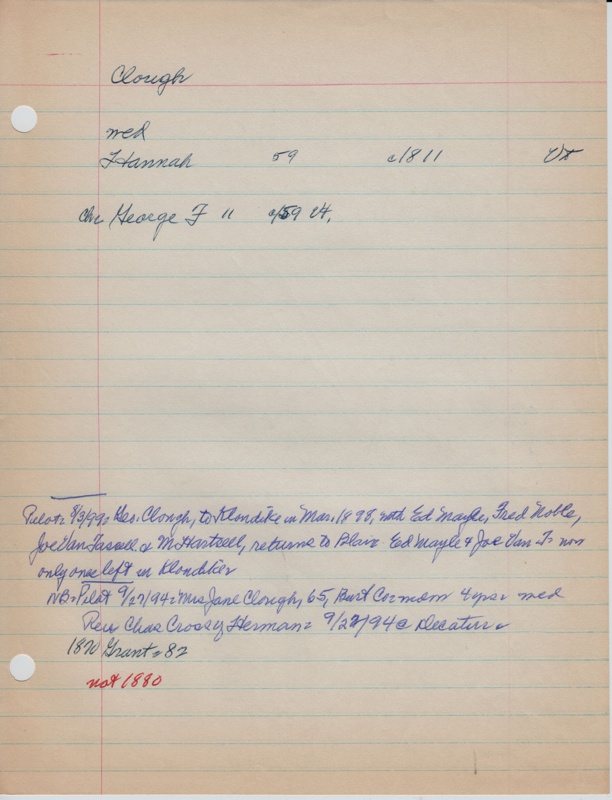 Clough
med
Hannah 59 c1811 Vt
chr George F 11 c/59 Vt.
Pilot: 8/3/99: Geo. Clough, to Klondike in Mar. 1898, with Ed Mayle, Fred Noble,
Joe Van Tassell & M. Hartzell, returns to Blair Ed Mayle & Joe Van T. now
only one left in Klondike
NB: Pilot 9/27/94: Mrs Jane Clough, 65, Burt Co 4 yrs med
Rev Chas Cross y Herman 9/22/94 Decatur
1870 Grant 82
not 1880